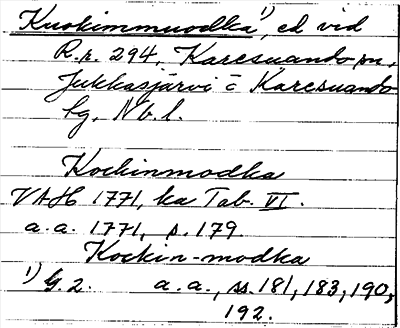 Kuokimmuodka¹⁾, ed vid
R.r. 294, Karesuando sn,
Jukkasjärvi o Karesuando
lg, Nb.l.
Kockinmodka
VAH 1771, ka Tab. VI.
a.a. 1771, s. 179.
Kockin-modka
¹⁾ G.2. a.a., ss. 181, 183, 190,
192.